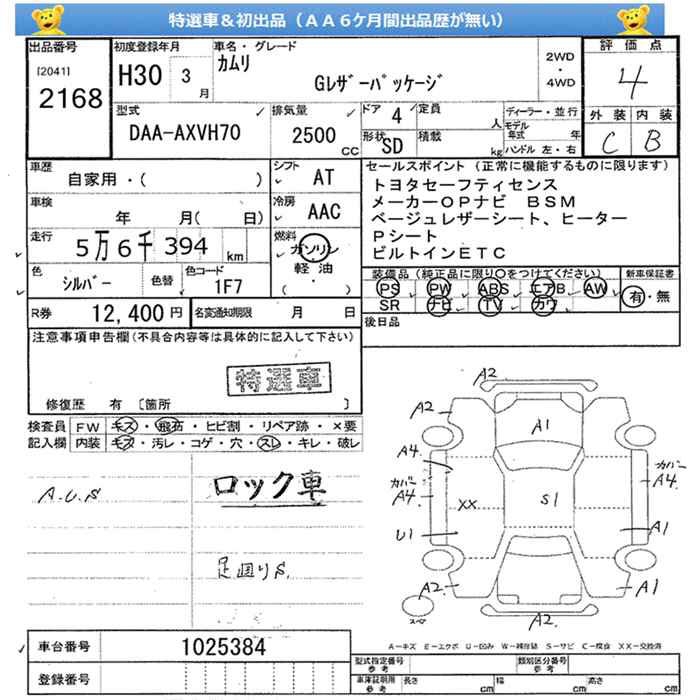 特選車＆初出品（ＡＡ６ケ月間出品歴が無い）
出品番号
[2041]
2168
初度登録年月
H30 3 月
車名・グレード
カムリ
Gレザーパッケージ
2WD
・
4WD
評価点
4
外装 内装
C B
型式
DAA-AXVH70
排気量
2500 CC
ドア 4
定員 人
形状 SD
積載 kg
ディーラー・並行
モデル年式 年
ハンドル 左・右
車歴
自家用・( )
シフト
AT
車検
年 月( 日)
冷房
AAC
走行
5万6千394 km
燃料
ガソリン
軽油
( ・ )
色
シルバー
色替
色コード
1F7
R券 12,400円
名変通知期限 月 日
セールスポイント（正常に機能するものに限ります）
トヨタセーフティセンス
メーカーＯＰナビ ＢＳＭ
ベージュレザーシート、ヒーター
Ｐシート
ビルトインＥＴＣ
装備品（純正品に限り〇をつけてください）
PS PW ABS エアB AW
SR ナビ TV カワ
新車保証書
有・無
後日品
注意事項申告欄(不具合内容等は具体的に記入して下さい)
特選車
修復歴 有 〔箇所 〕
検査員記入欄
FW キズ・飛石・ヒビ割・リペア跡・×要
内装 キズ・汚レ・コゲ・穴・スレ・キレ・破レ
A.U.S
ロック車
足廻りS.
A2
A2
A1
A2
A4
カバー
A4
カバー
A4
XX
S1
U1
A1
A2
A1
A2
スペア
A－キズ E－エクボ U－凹み W－補修跡 S－サビ C－腐食 XX－交換済
車台番号 1025384
登録番号
型式指定番号
参考
類別区分番号
参考
車庫証明用
参考
長さ cm 幅 cm 高さ cm